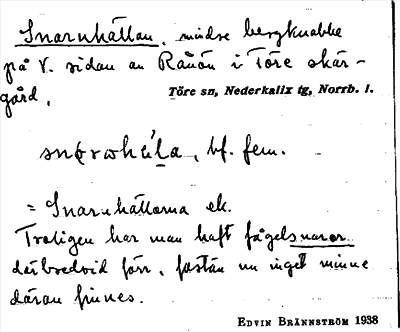 Snarnhällan, mindre bergknabbe
på V. sidan av Rånön i Töre skär-
gård.
Töre sn, Nederkalix tg, Norrb. l.
bf. fem.
= Snarnhällorna ek.
Troligen har man haft fågelsnaror
därbredvid förr, fastän nu inget minne
därav finnes.
EDVIN BRÄNNSTRÖM 1938